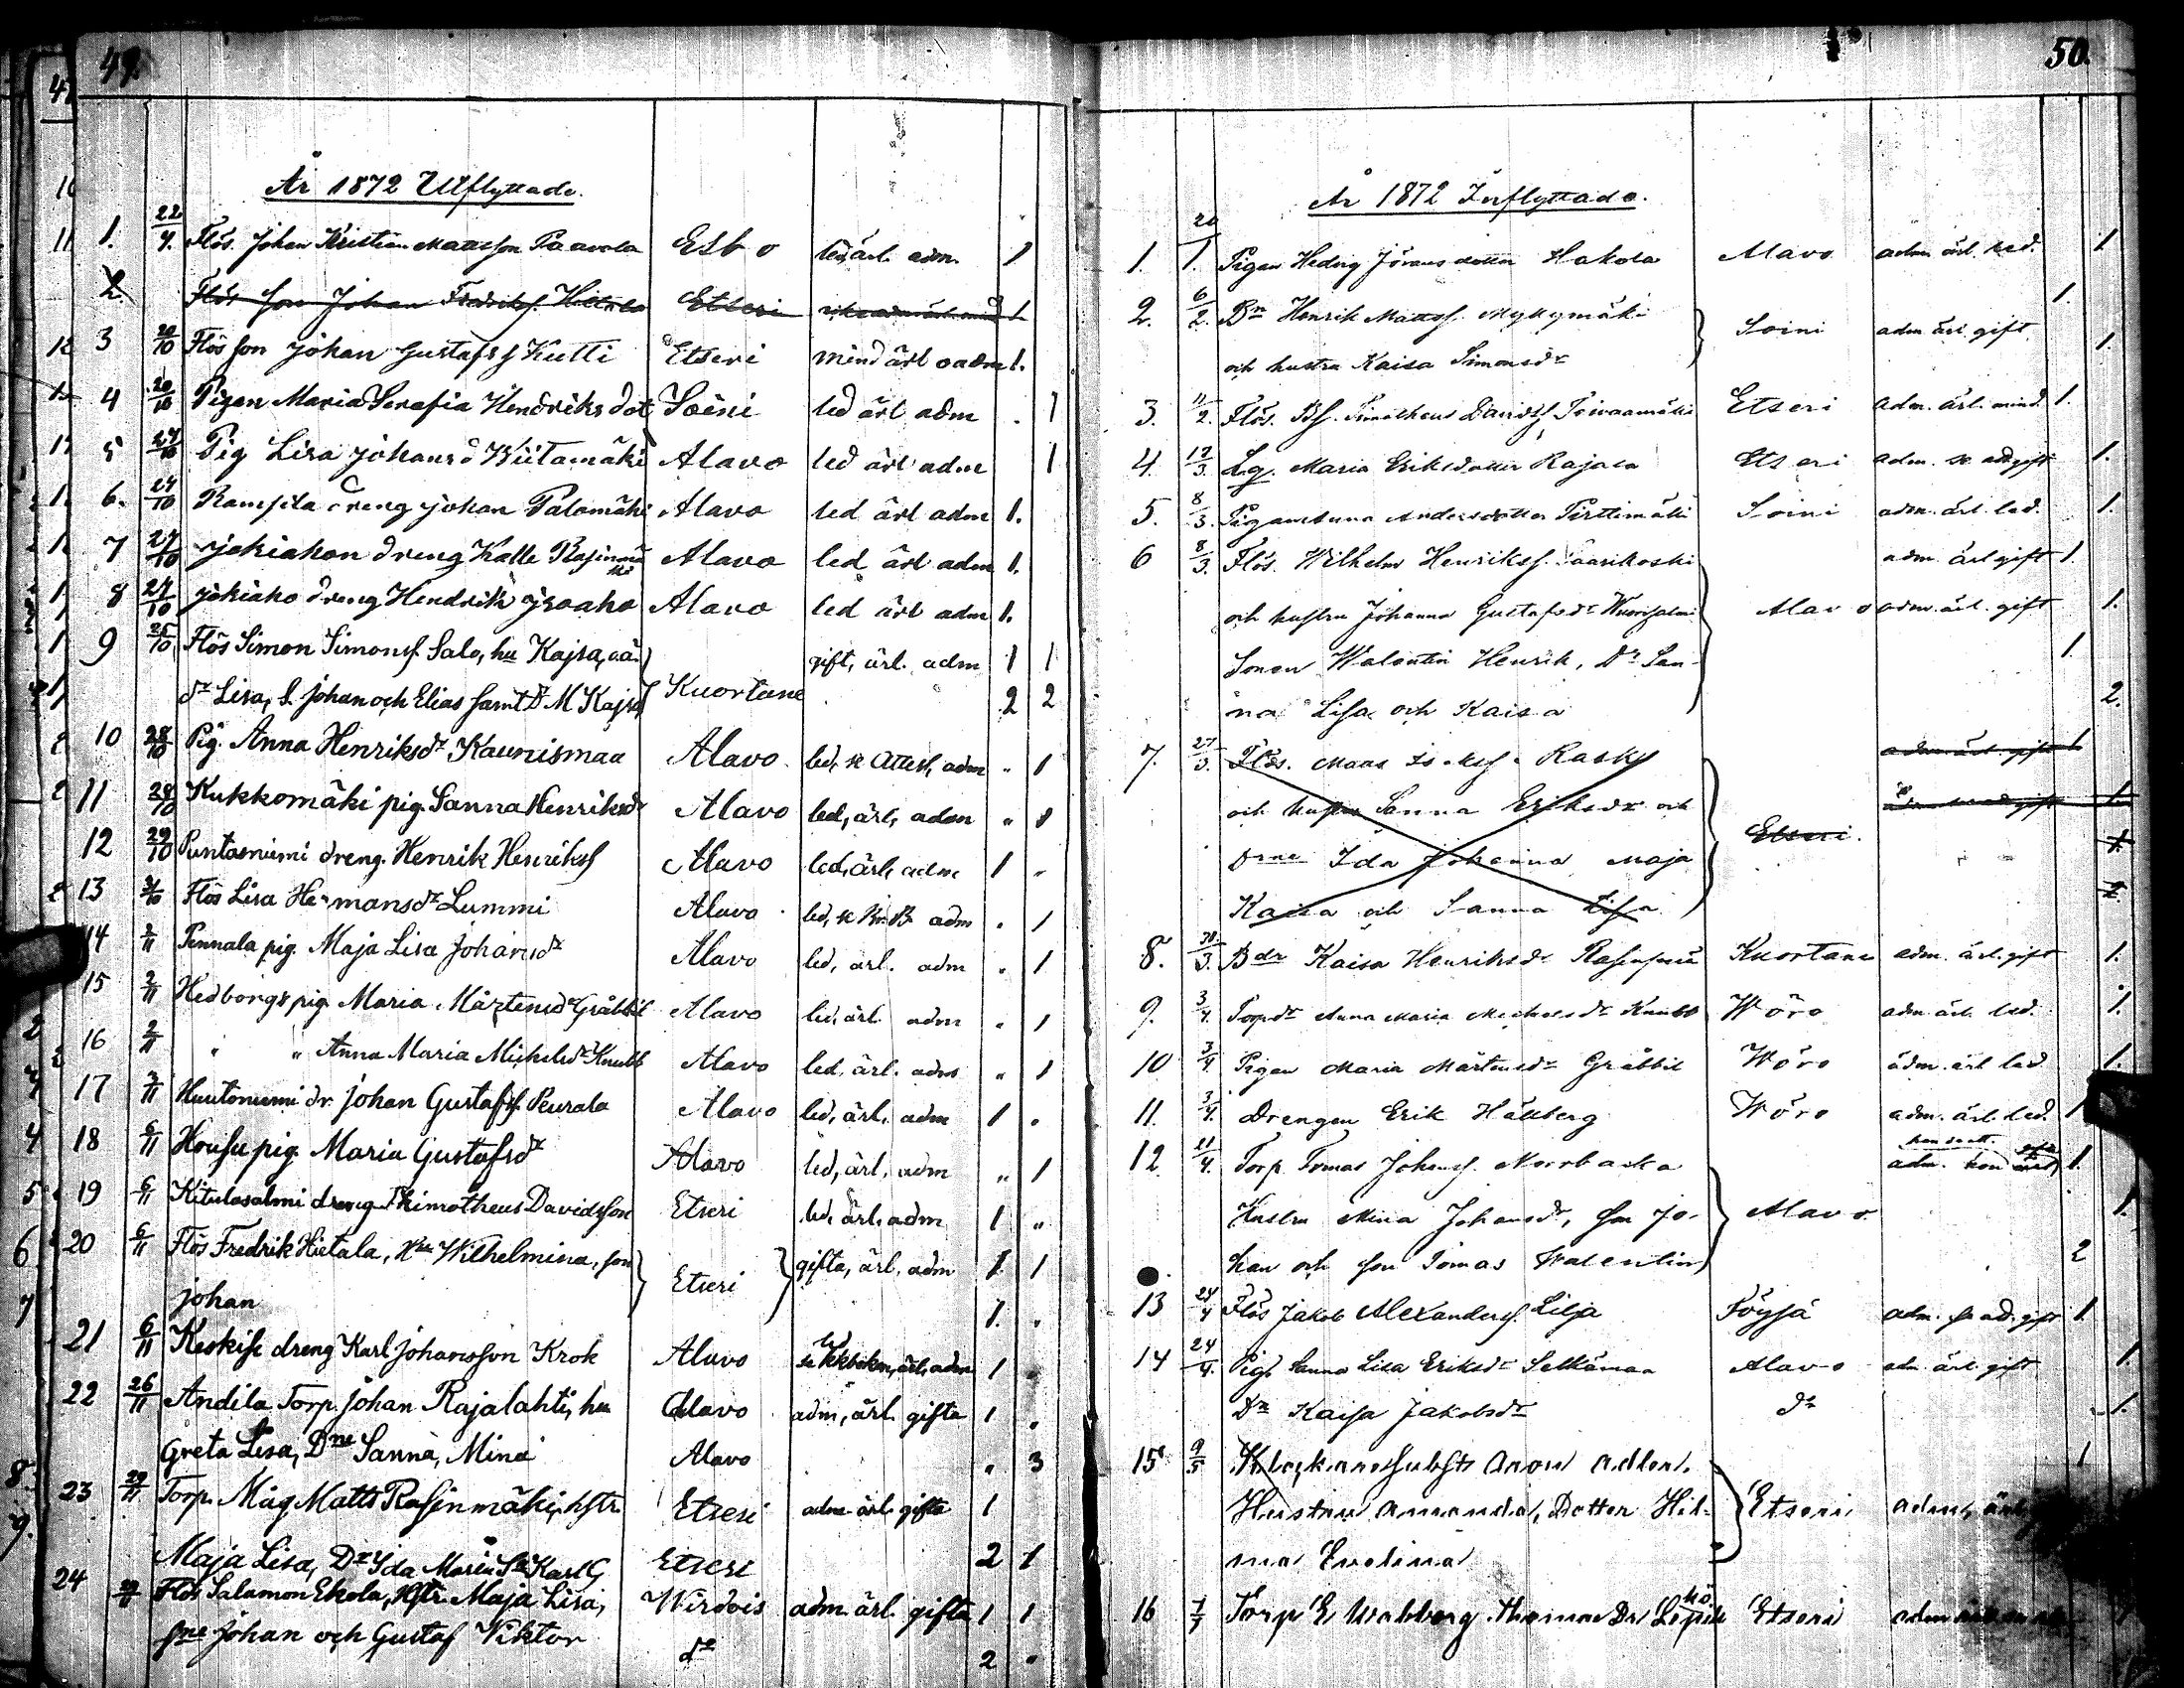 49.
År 1872 Utflyttade.
1. 22/9. Flös. Johan Kristian Mattsson Paavola Esbo led, ärl. adm. 1
2. Flös son Johan Fredriksf. Hietala Etseri 1
3 20/10 Flös son Johan Gustafsf Kutti Etseri mind ärl o adm 1.
4 20/10 Pigan Maria Serafia Hendriksdot Soini led ärl adm . 1
5 24/10 Pig Lisa Johansd Wiitamäki Alavo led ärl adm 1
6. 24/10 Rampila dreng Johan Palomäki Alavo led ärl adm 1.
7 24/10 Jokiahon dreng Kalle Rasinmäki Alavo led ärl adm 1.
8 24/10 Jokiaho dreng Hendrik Isoaho Alavo led ärl adm 1.
9 25/10 Flös Simon Simonsf. Salo, hu Kajsa, gift, ärl. adm 1 1
dr Lisa, S. Johan och Elias samt Dr M Kajsa Kuortane 2 2
10 28/10 Pig. Anna Henriksdr Kaunismaa Alavo led, se attest, adm " 1
11 28/10 Kukkomäki pig. Sanna Henriksdr Alavo led, ärl, adm " 1
12 29/10 Puntasniemi dreng. Henrik Henriksf Alavo led, ärl, adm 1 "
13 Flös Lisa Hermansdr Lummi Alavo led, se adm . 1
14 2/11 Pennala pig. Maja Lisa Johansdr Alavo led, ärl. adm " 1
15 2/11 Hedborgs pig. Maria Mårtensdr Gräbbil Alavo led, ärl. adm " 1
16 2/11 " " Anna Maria Michelsdr Knubb Alavo led, ärl. adm " 1
17 Huutoniemi dr Johan Gustafsf. Peurala Alavo led, ärl, adm 1 .
18 6/11 Housu pig. Maria Gustafsdr Alavo led, ärl, adm " 1
19 6/11 Kitulasalmi dreng Thimotheus Davidsson Etseri led, ärl, adm 1 "
20 6/11 Flös Fredrik Hietala, Hu Wilhelmina, son Etseri gifta, ärl, adm 1 1
Johan 1. "
21 6/11 Keskise dreng Karl Johansson Krok Alavo led ärl, adm 1 .
22 26/11 Andila Torp. Johan Rajalahti, hu Alavo adm, ärl. gifta 1 .
Greta Lisa, Dne Sanna, Mina Alavo " 3
23 29/11 Torp. Måg Matts Rasinmäki, hstr. Etseri adm ärl gifta 1
Maja Lisa, Dr Ida Maria Sn Karl G Etseri 2 1
24 Flös Salamon Ekola, Hstr. Maja Lisa, Wirdois adm. ärl. gifta 1 1
sne Johan och Gustaf Viktor do 2 "
50.
År 1872 Inflyttade.
1. 20/1. Pigan Hedvig Jöransdotter Hakola Alavo adm ärl. led. 1
2. 6/2. Bn Henrik Mattsf. Myllymäki Soini adm ärl gift 1.
och hustru Kaisa Simonsdr 1.
3. 11/2. Flös. Timotheus Davidsf. Toivaamäki Etseri adm. ärl. mind. 1.
4. 17/3. Lg. Maria Eriksdotter Rajala Etseri adm. gift 1.
5. 8/3. Pigan Anna Andersdotter Pirttimäki Soini adm. ärl. led. 1.
6 8/3. Flös. Wilhelm Henriksf. Saarikoski adm. ärl gift 1.
och hustru Johanna Gustafsdr Alavo adm. ärl. gift 1.
Sonen Walentin Henrik, Dr San- 1.
na Lisa och Kaisa 2.
7. 27/3. Flös. Matts Raski adm. ärl. gift 1
och hustru Sanna Eriksdr och 1.
Drne Ida Johanna Maja Etseri.
Kaisa och Sanna Lisa
8. 30/3. Bdr Kaisa Henriksdr Kuortane adm. ärl. gift 1.
9. 3/4. Torpdr Anna Maria Michelsdr Knubb Wörå adm. ärl. led. 1.
10 3/4. Pigan Maria Mårtensdr Gräbbil Wörå adm. ärl led 1.
11. 3/4. Drengen Erik Hällberg Wörå adm. ärl. led. 1
12 21/4. Torp. Tomas Johansf. Norrbacka adm. hon 1.
Hustru Mina Johansdr, son Jo- Alavo 1.
han och son Tomas Walentin 2
13 24/4 Flös Jakob Alexandersf. Lilja Töysä adm. gift 1.
14 24/4. Pig. Sanna Lisa Eriksdr Selkämaa Alavo adm ärl. gift 1.
Dr Kaisa Jakobsdr do 1.
15 9/5 Klockaresubst. Aron Adler. 1
Hustru Amanda, Dotter Hil- Etseri adm, ärl
ma Evelina
16 Torp E Wabberg Etseri adm